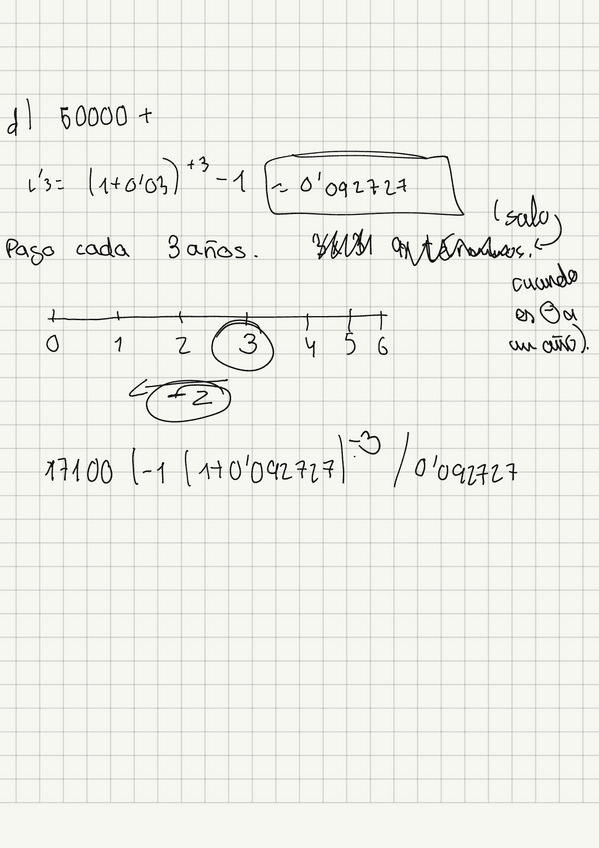 d) 50000 +
i'3 = (1+0'03)^+3 - 1 = 0'092727
Pago cada 3 años.
(solo
cuando
es
un año).
0 1 2 3 4 5 6
-2
17100 (-1 (1+0'092727)^-3 / 0'092727